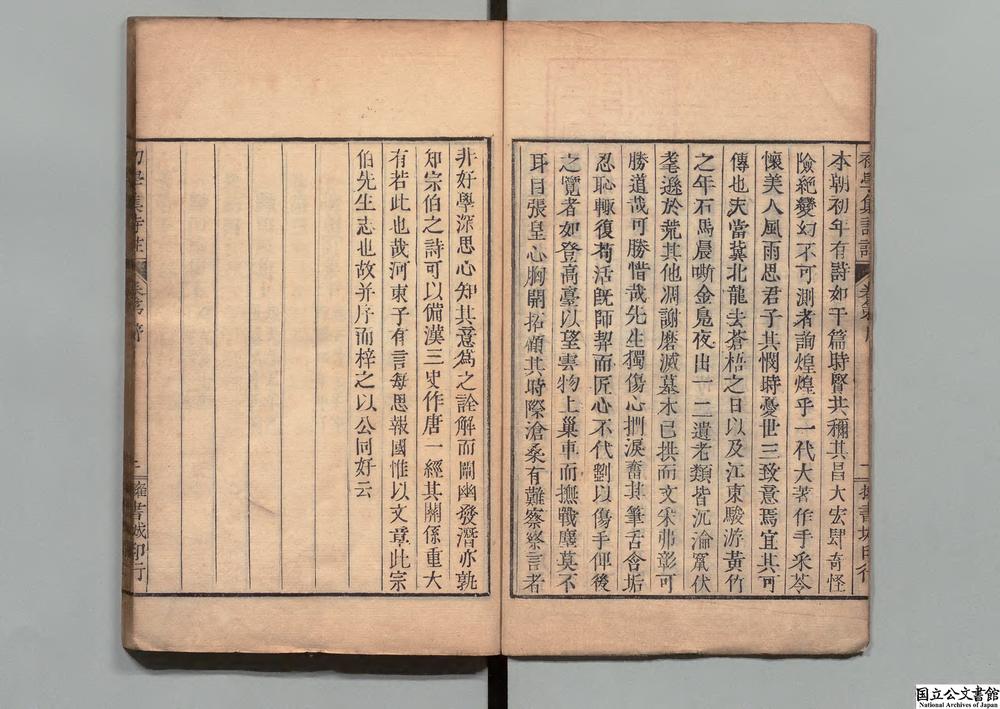 本朝初年有詩如干篇時賢共穪其昌大宏肆奇怪
險絶變幻不可測者詢煌煌乎一代大著作手采苓
懷美人風雨思君子其憫時憂世三致意焉宜其可
傳也夫當冀北龍去蒼梧之日以及江東駿游黃竹
之年石馬晨嘶金鳧夜出一二遺老類皆沉淪竄伏
耄遜於荒其他凋謝磨滅墓木已拱而文采弗彰可
勝道哉可勝惜哉先生獨傷心捫淚奮其筆舌含垢
忍恥輙復苟活旣師契而匠心不代斵以傷手俾後
之覽者如登高臺以望雲物上巢車而撫戰塵莫不
耳目張皇心胸開拓顧其時際滄桑有難察察言者
非好學深思心知其意爲之詮解而闡幽發潛亦孰
知宗伯之詩可以備漢三史作唐一經其關係重大
有若此也哉河東子有言每思報國惟以文章此宗
伯先生志也故并序而梓之以公同好云
初學集詩註
国立公文書館
National Archives of Japan